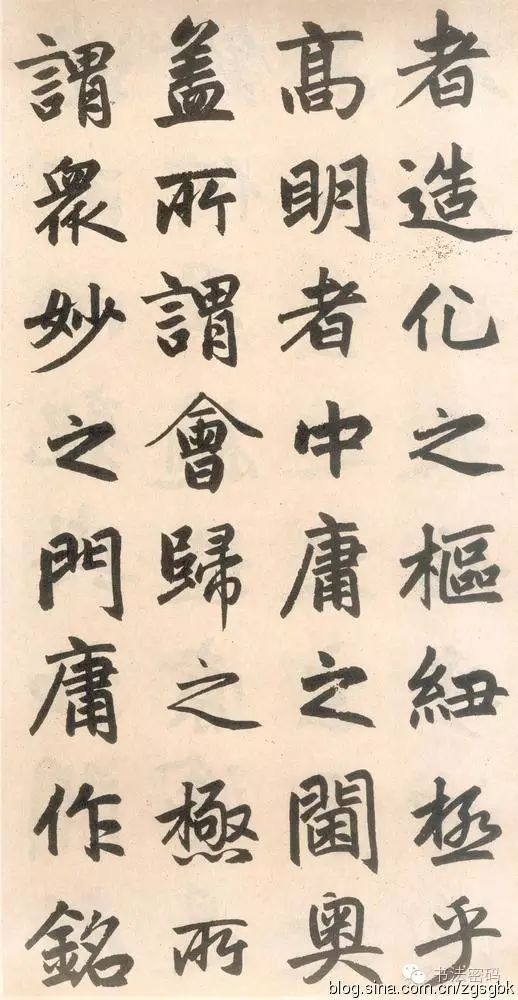 者造化之樞紐極乎
髙明者中庸之閫奥
葢所謂會歸之極所
謂衆妙之門庸作銘
书法密码
blog.sina.com.cn/zgsgbk